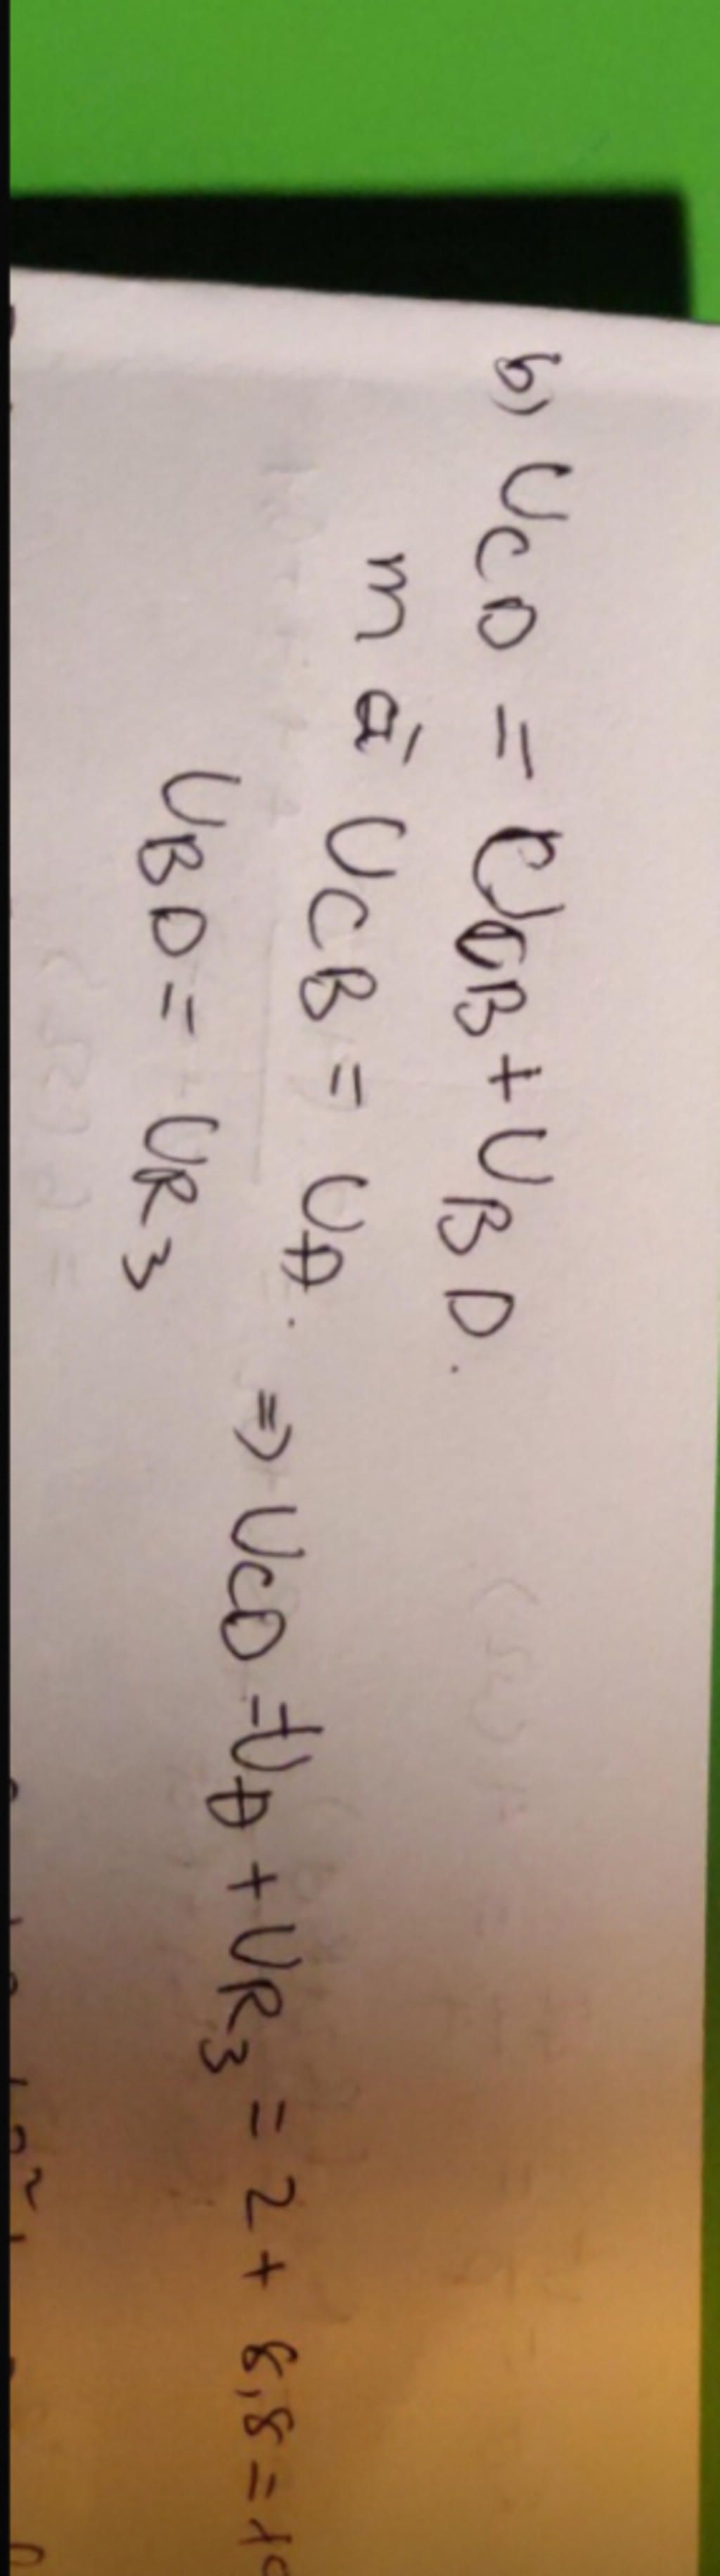 b) UCD = UCB + UBD.
mà UCB = UĐ. => UCD = UĐ + UR3 = 2 + 8,8 = 10
UBD = UR3